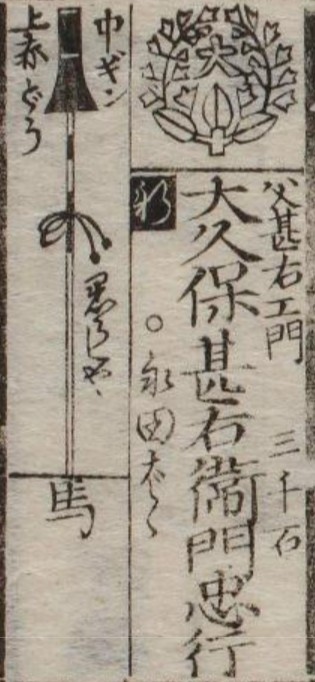 大
父甚右エ門
三千石
大久保甚右衛門忠行
新
○永田ばゞ
中ギン
上赤どう
黒らしや
馬